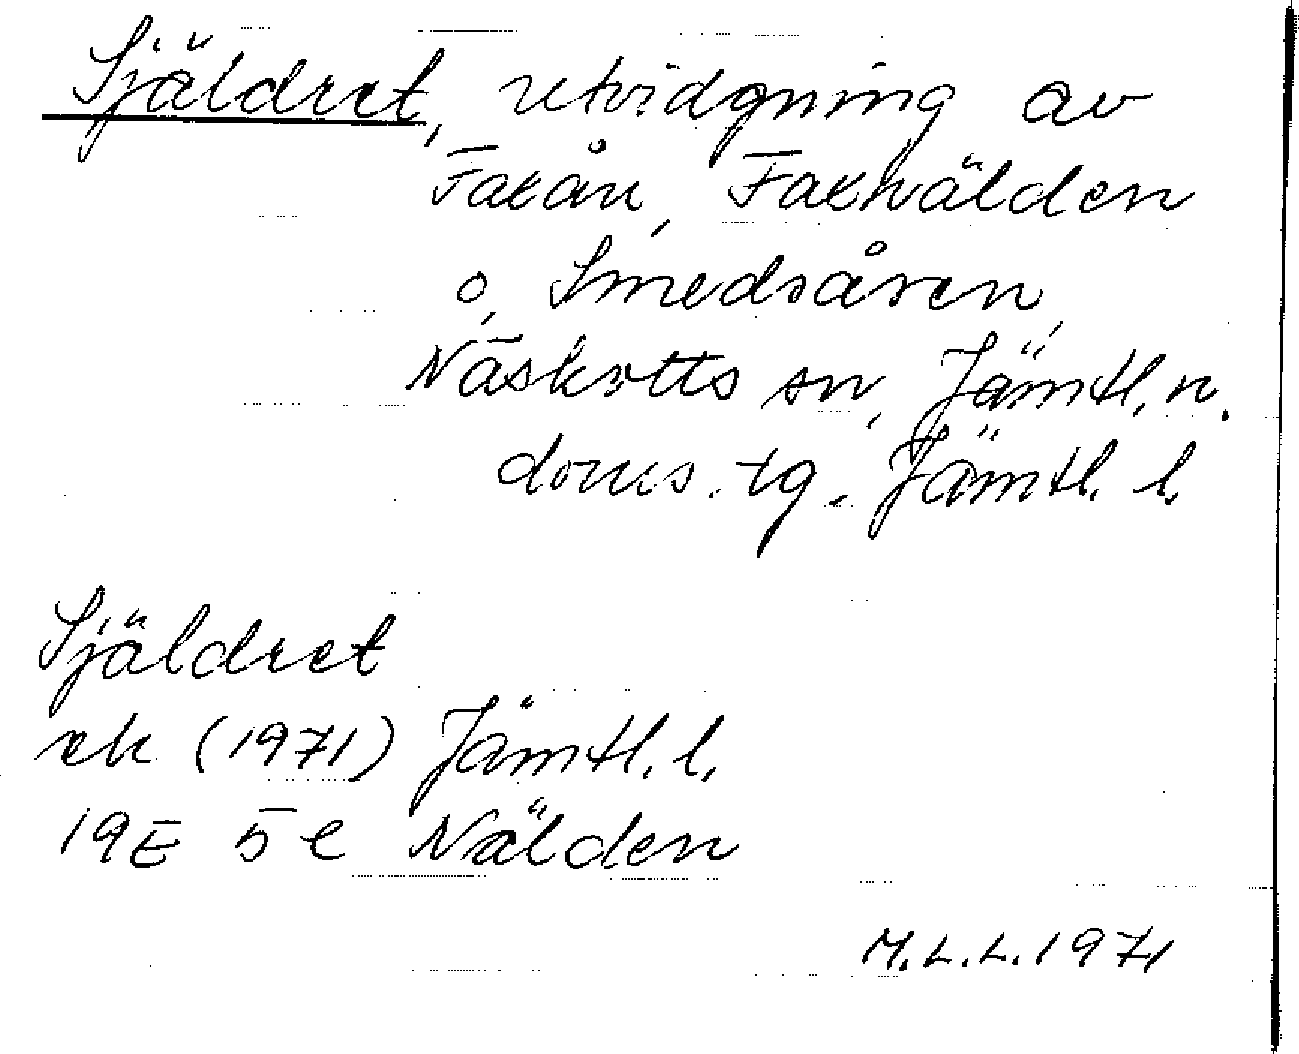 Själdret, utvidgning av
Faxån, Faxnälden
o, Smedsåsen,
Näskotts sn, Jämtl. n.
doms. tg. Jämtl. l.
Själdret
ek (1971) Jämtl. l.
19E 5e Nälden
M.L.L. 1971